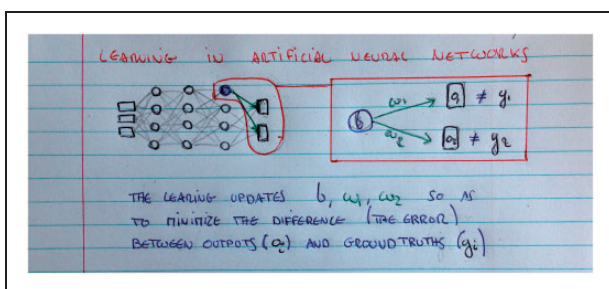 LEARNING IN ARTIFICIAL NEURAL NETWORKS
b ω1 a ≠ y1
ω2 a ≠ y2
THE LEARING UPDATES b, ω1, ω2 SO AS
TO MINIMIZE THE DIFFERENCE (THE ERROR)
BETWEEN OUTPUTS (a) AND GROUND TRUTHS (yi)